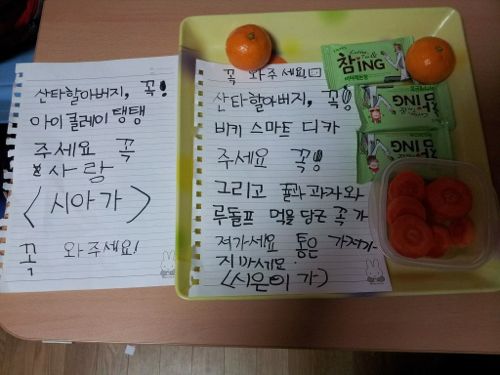 산타할아버지, 꼭!
아이클레이 탱탱
주세요 꼭
사랑
〈시아가〉
꼭 와주세요!
꼭 와주세요!
산타할아버지, 꼭!
비키 스마트 디카
주세요 꼭!
그리고 귤과 과자와
루돌프 먹을 당근 꼭 가
져가세요 통은 가져가
지 마세요.
〈시은이가〉
참ING
참ING
참ING